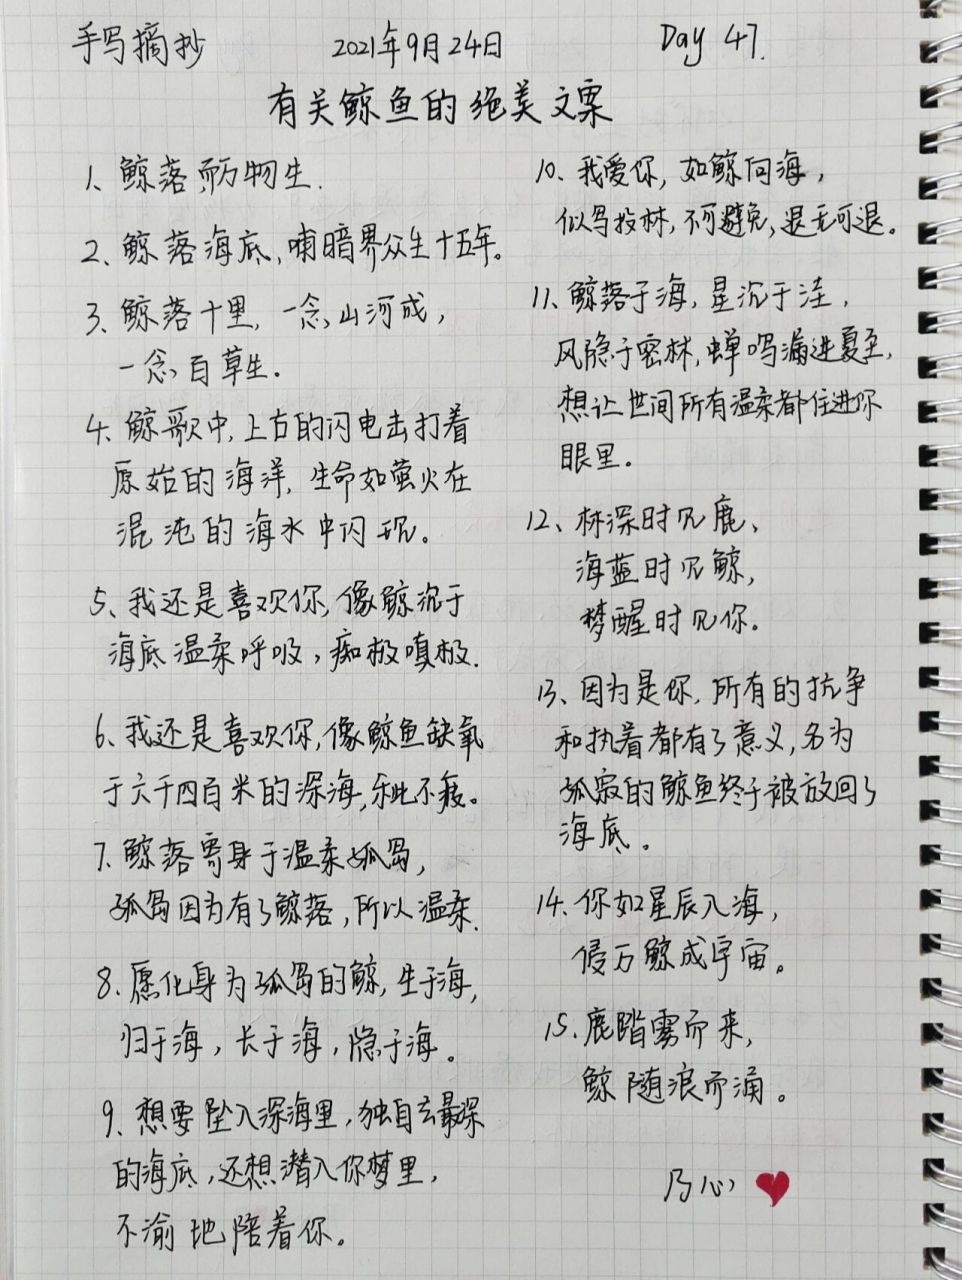 手写摘抄
2021年9月24日
Day 47.
有关鲸鱼的绝美文案
1、鲸落,万物生.
2、鲸落海底,哺暗界众生十五年。
3、鲸落十里,一念山河成,
一念百草生.
4、鲸歌中,上古的闪电击打着
原始的海洋,生命如萤火在
混沌的海水中闪现。
5、我还是喜欢你,像鲸沉于
海底温柔呼吸,痴极嗔极.
6、我还是喜欢你,像鲸鱼缺氧
于六千四百米的深海,乐此不疲。
7、鲸落寄身于温柔孤岛,
孤岛因为有了鲸落,所以温柔.
8、愿化身为孤岛的鲸,生于海,
归于海,长于海,隐于海。
9、想要坠入深海里,独自去最深
的海底,还想潜入你梦里,
不渝地陪着你。
10、我爱你,如鲸向海,
似鸟投林,不可避免,退无可退。
11、鲸落于海,星沉于洼,
风隐于密林,蝉鸣漏进夏至,
想让世间所有温柔都住进你
眼里。
12、林深时见鹿、
海蓝时见鲸,
梦醒时见你.
13、因为是你,所有的抗争
和执着都有了意义,名为
孤寂的鲸鱼终于被放回了
海底。
14、你如星辰入海,
侵万鲸成宇宙。
15、鹿踏雾而来,
鲸随浪而涌。
乃心